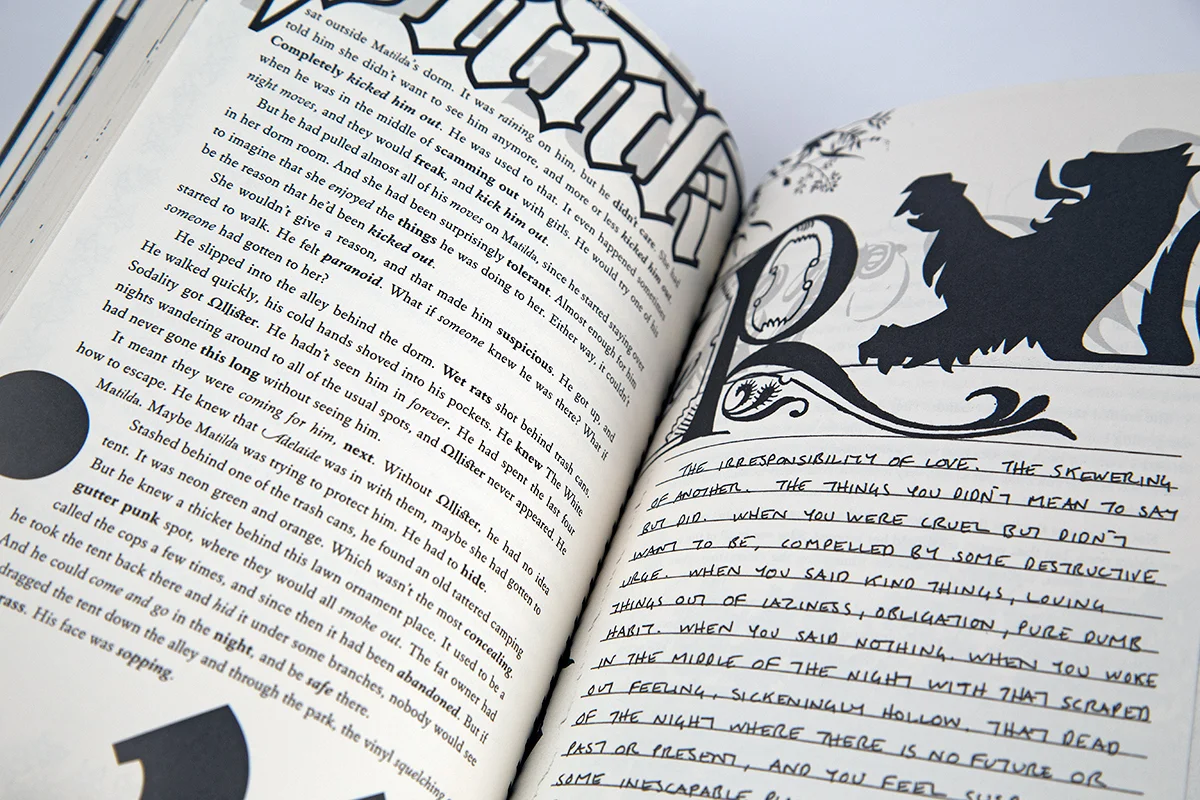 sat outside Matilda's dorm. It was raining on him, but he didn't care. She had
told him she didn't want to see him anymore, and more or less kicked him out.
Completely kicked him out. He was used to that. It even happened sometimes
when he was in the middle of scamming out with girls. He would try one of his
night moves, and they would freak, and kick him out.
But he had pulled almost all of his moves on Matilda, since he started staying over
in her dorm room. And she had been surprisingly tolerant. Almost enough for him
to imagine that she enjoyed the things he was doing to her. Either way, it couldn't
be the reason that he'd been kicked out.
She wouldn't give a reason, and that made him suspicious. He got up, and
started to walk. He felt paranoid. What if someone knew he was there? What if
someone had gotten to her?
He slipped into the alley behind the dorm. Wet rats shot behind trash cans.
He walked quickly, his cold hands shoved into his pockets. He knew The White
Sodality got Ωllister. He hadn't seen him in forever. He had spent the last four
nights wandering around to all of the usual spots, and Ωllister never appeared. He
had never gone this long without seeing him.
It meant they were coming for him, next. Without Ωllister, he had no idea
how to escape. He knew that Adelaide was in with them, maybe she had gotten to
Matilda. Maybe Matilda was trying to protect him. He had to hide.
Stashed behind one of the trash cans, he found an old tattered camping
tent. It was neon green and orange. Which wasn't the most concealing.
But he knew a thicket behind this lawn ornament place. It used to be a
gutter punk spot, where they would all smoke out. The fat owner had
called the cops a few times, and since then it had been abandoned. But if
he took the tent back there and hid it under some branches, nobody would see
And he could come and go in the night, and be safe there.
dragged the tent down the alley and through the park, the vinyl squelching
rass. His face was sopping.
R
THE IRRESPONSIBILITY OF LOVE. THE SKEWERING
OF ANOTHER. THE THINGS YOU DIDN'T MEAN TO SAY
BUT DID. WHEN YOU WERE CRUEL BUT DIDN'T
WANT TO BE, COMPELLED BY SOME DESTRUCTIVE
URGE. WHEN YOU SAID KIND THINGS, LOVING
THINGS OUT OF LAZINESS, OBLIGATION, PURE DUMB
HABIT. WHEN YOU SAID NOTHING WHEN YOU WOKE
IN THE MIDDLE OF THE NIGHT WITH THAT SCRAPED
OUT FEELING, SICKENINGLY HOLLOW, THAT DEAD
OF THE NIGHT WHERE THERE IS NO FUTURE OR
PAST OR PRESENT, AND YOU FEEL
SOME INESCAPABLE